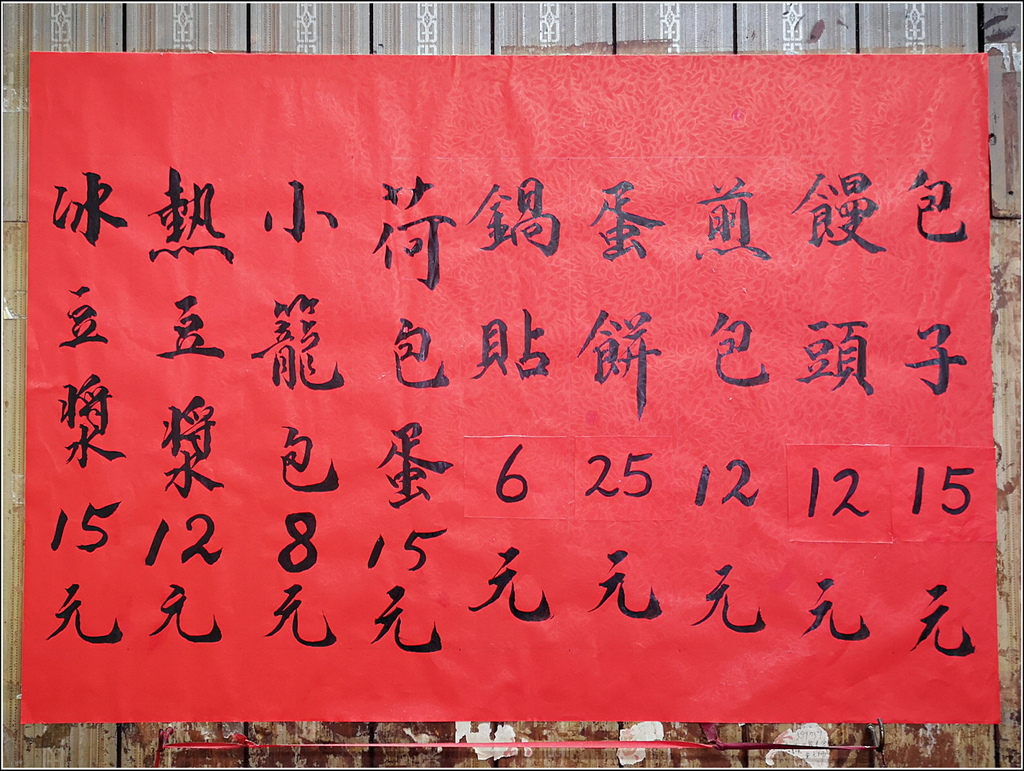 包子15元
饅頭12元
煎包12元
蛋餅25元
鍋貼6元
荷包蛋15元
小籠包8元
熱豆漿12元
冰豆漿15元